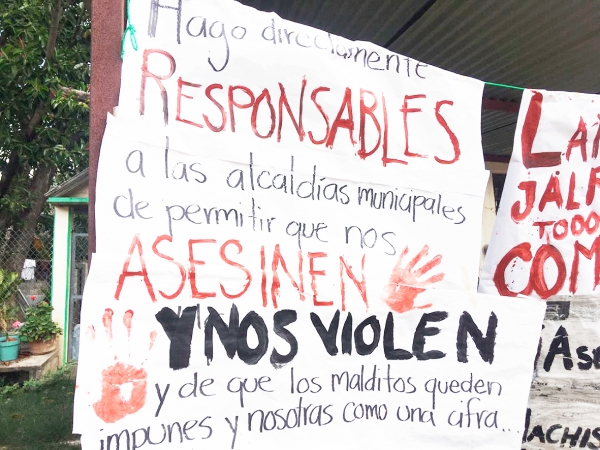 Hago directamente
RESPONSABLES
a las alcaldías municipales
de permitir que nos
ASESINEN
Y NOS VIOLEN
y de que los malditos queden
impunes y nosotras como una cifra...
JALR
TODO
COM